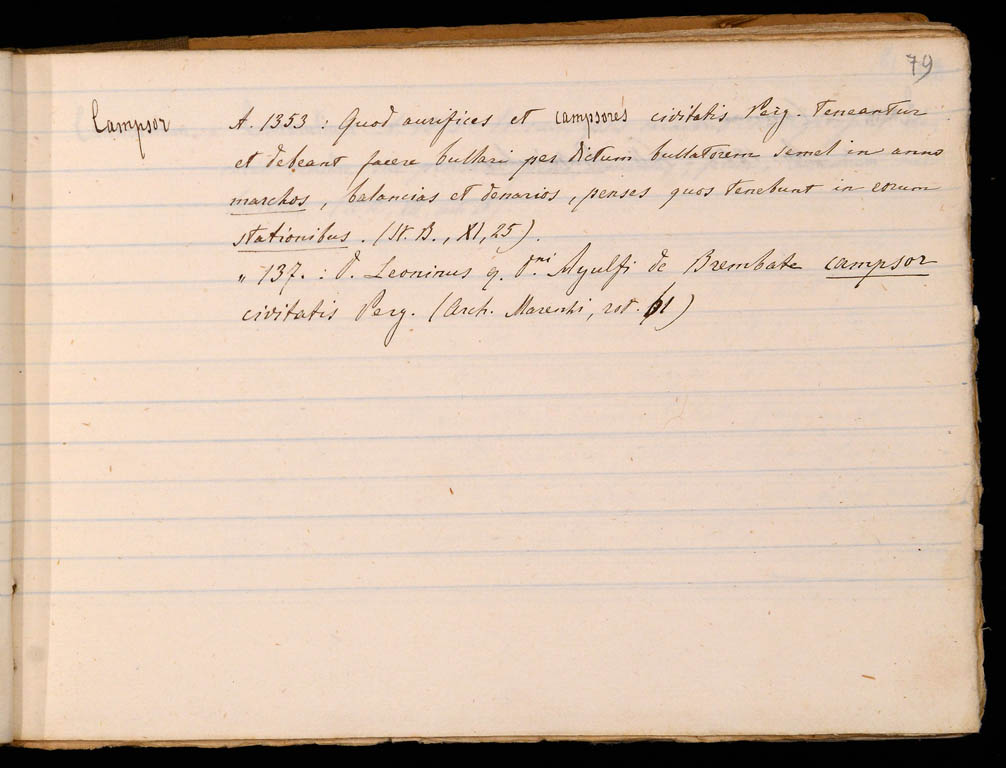 79
Campsor A. 1353 : Quod aurifices et campsores civitatis Perg. teneantur
et debeant facere bullari per dictum bullatorem semel in anno
marchos, balancias et denarios, penses quos tenebunt in eorum
stationibus. (St. B., XI, 25).
„ 137. : d. Leoninus q. d.ni Ayulfi de Brembate campsor
civitatis Perg. (Arch. Marenzi, rot. 61)